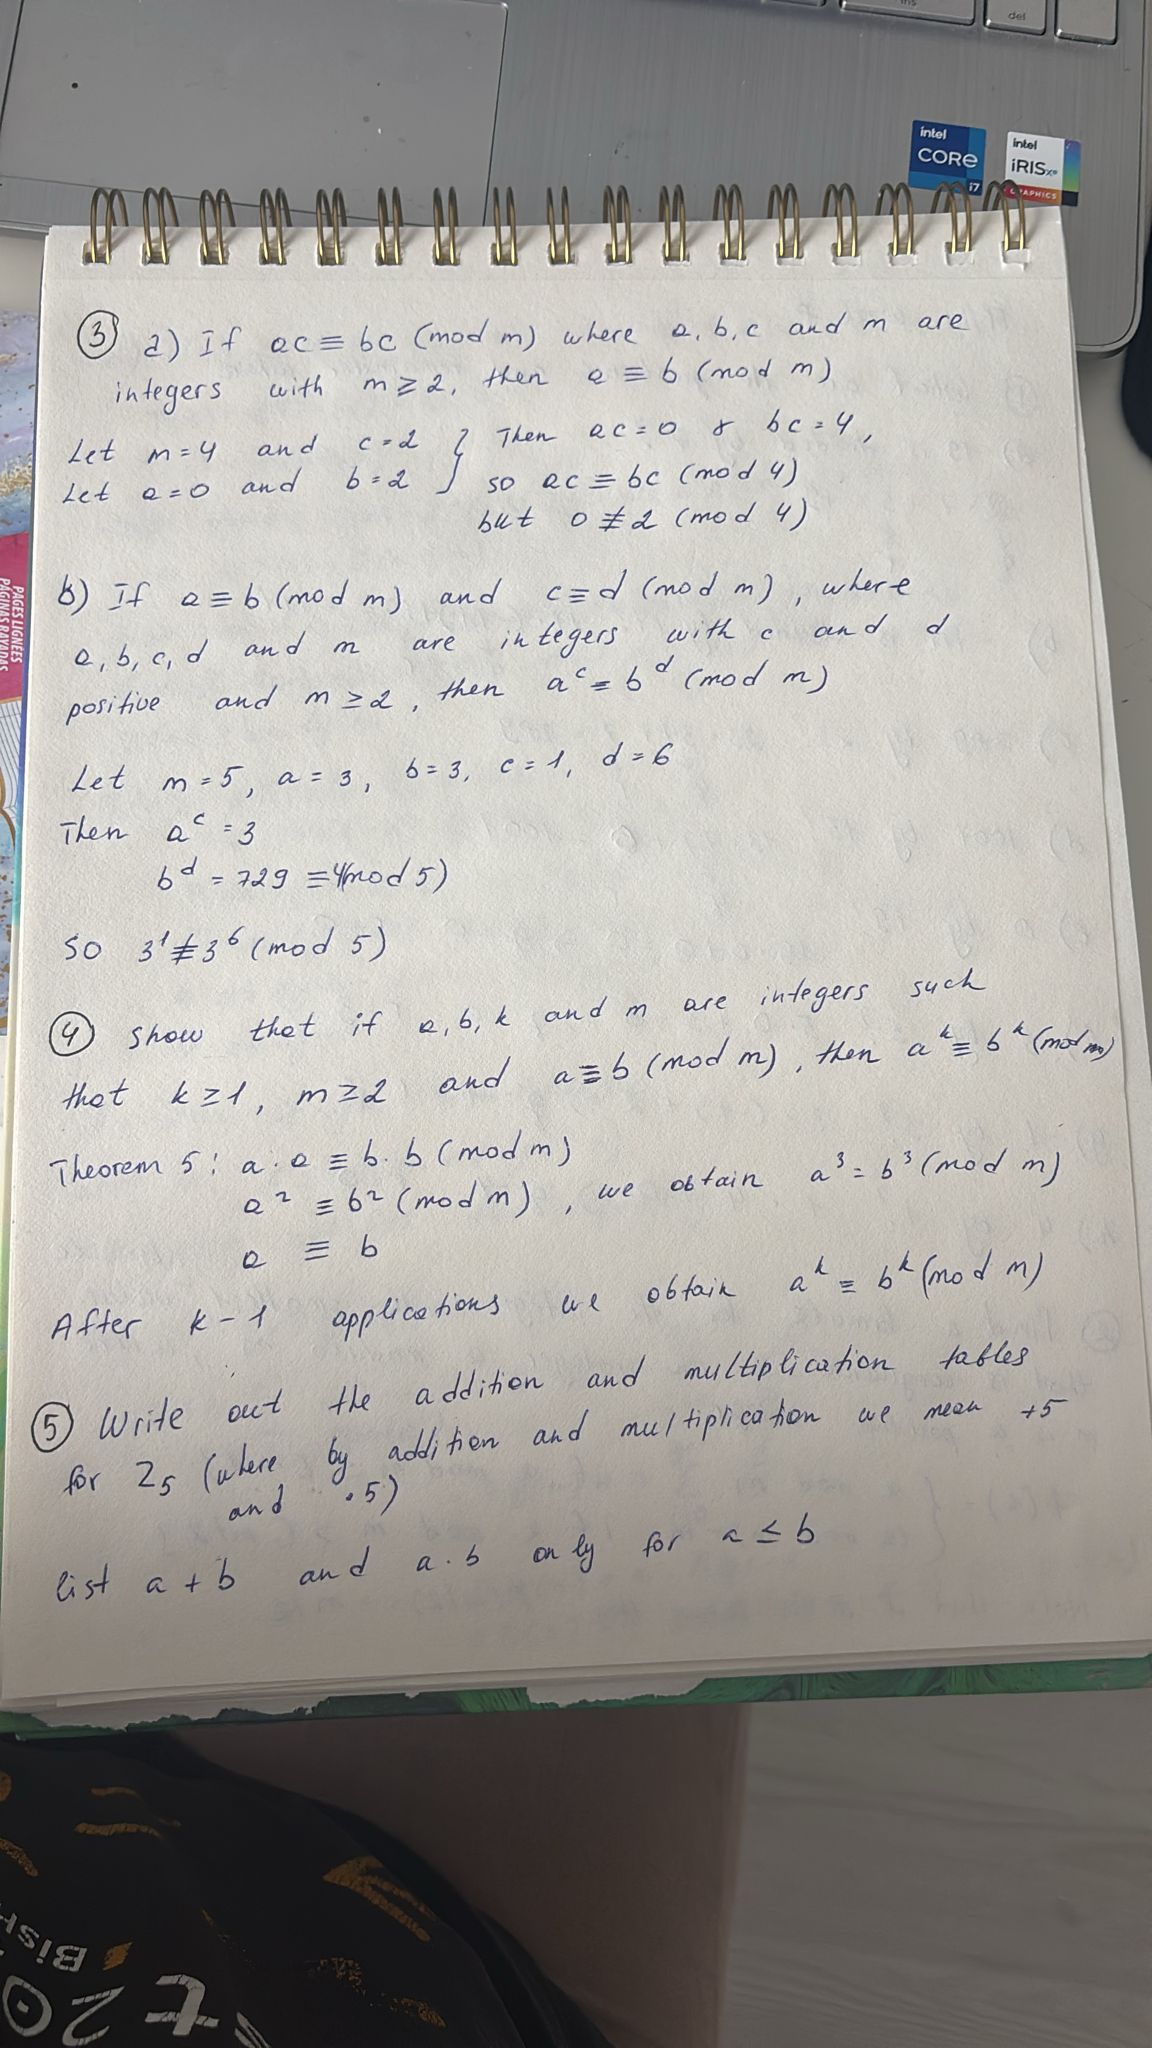 ins
del
intel
CORE
i7
intel
iRISxe
GRAPHICS
PAGES LIGNÉES
PÁGINAS RAYADAS
③ a) If ac ≡ bc (mod m) where a, b, c and m are
integers with m ≥ 2, then a ≡ b (mod m)
Let m = 4 and c = 2 } Then ac = 0 & bc = 4,
Let a = 0 and b = 2 } so ac ≡ bc (mod 4)
but 0 ≢ 2 (mod 4)
b) If a ≡ b (mod m) and c ≡ d (mod m), where
a, b, c, d and m are integers with c and d
positive and m ≥ 2, then a^c = b^d (mod m)
Let m = 5, a = 3, b = 3, c = 1, d = 6
Then a^c = 3
b^d = 729 ≡ 4(mod 5)
So 3^1 ≢ 3^6 (mod 5)
④ Show that if a, b, k and m are integers such
that k ≥ 1, m ≥ 2 and a ≡ b (mod m), then a^k ≡ b^k (mod m)
Theorem 5: a · a ≡ b · b (mod m)
a^2 ≡ b^2 (mod m), we obtain a^3 = b^3 (mod m)
a ≡ b
After k - 1 applications we obtain a^k ≡ b^k (mod m)
⑤ Write out the addition and multiplication tables
for Z5 (where by addition and multiplication we mean +5
and ·5)
list a + b and a · b only for a ≤ b